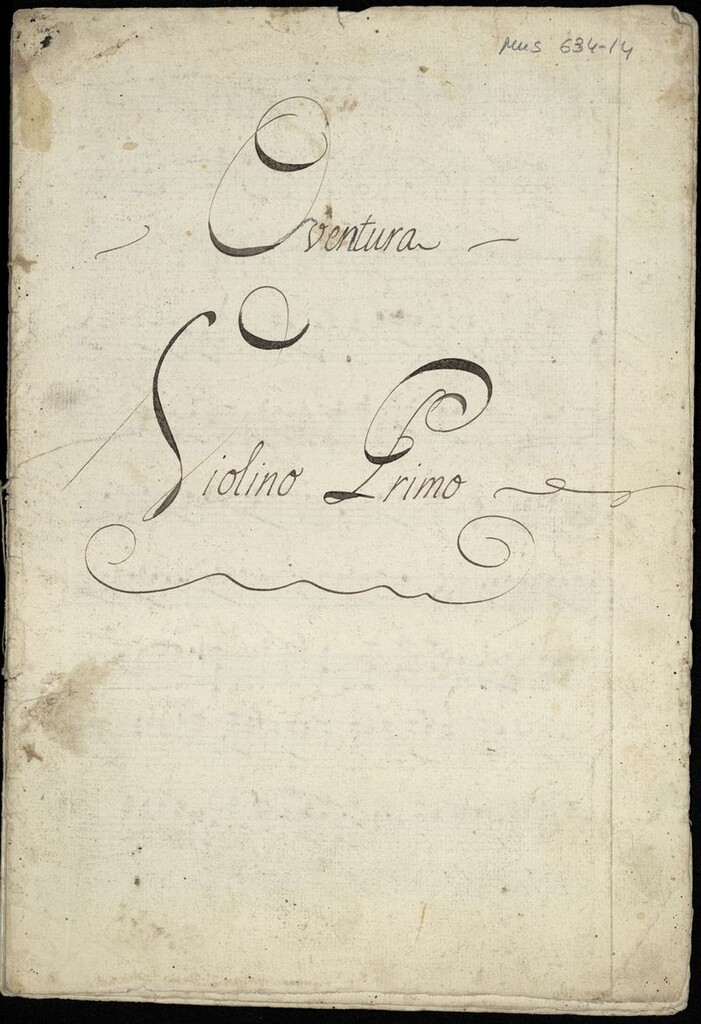 Mus 634-14
Oventura
Violino Primo